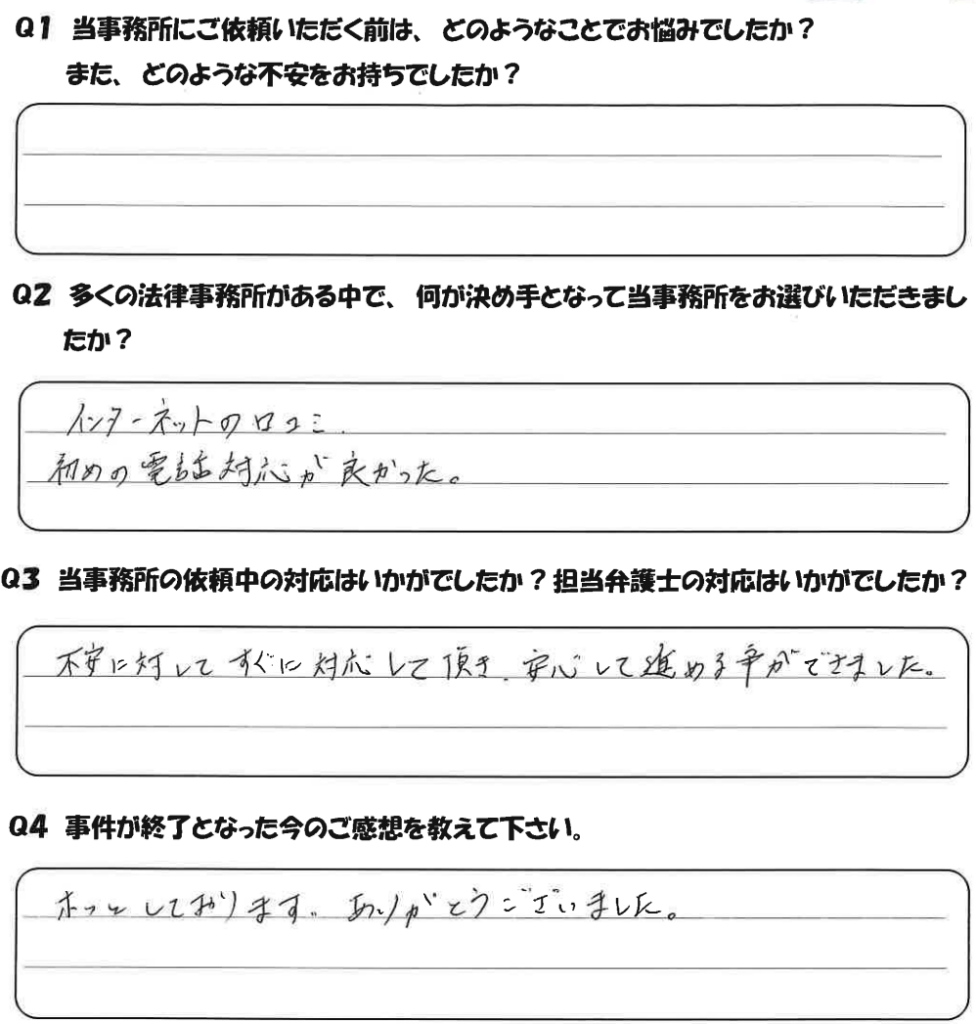 Q1 当事務所にご依頼いただく前は、どのようなことでお悩みでしたか？
また、どのような不安をお持ちでしたか？
Q2 多くの法律事務所がある中で、何が決め手となって当事務所をお選びいただきまし
たか？
インターネットの口コミ.
初めの電話対応が良かった。
Q3 当事務所の依頼中の対応はいかがでしたか？担当弁護士の対応はいかがでしたか？
不安に対してすぐに対応して頂き、安心して進める事ができました。
Q4 事件が終了となった今のご感想を教えて下さい。
ホッとしております。ありがとうございました。